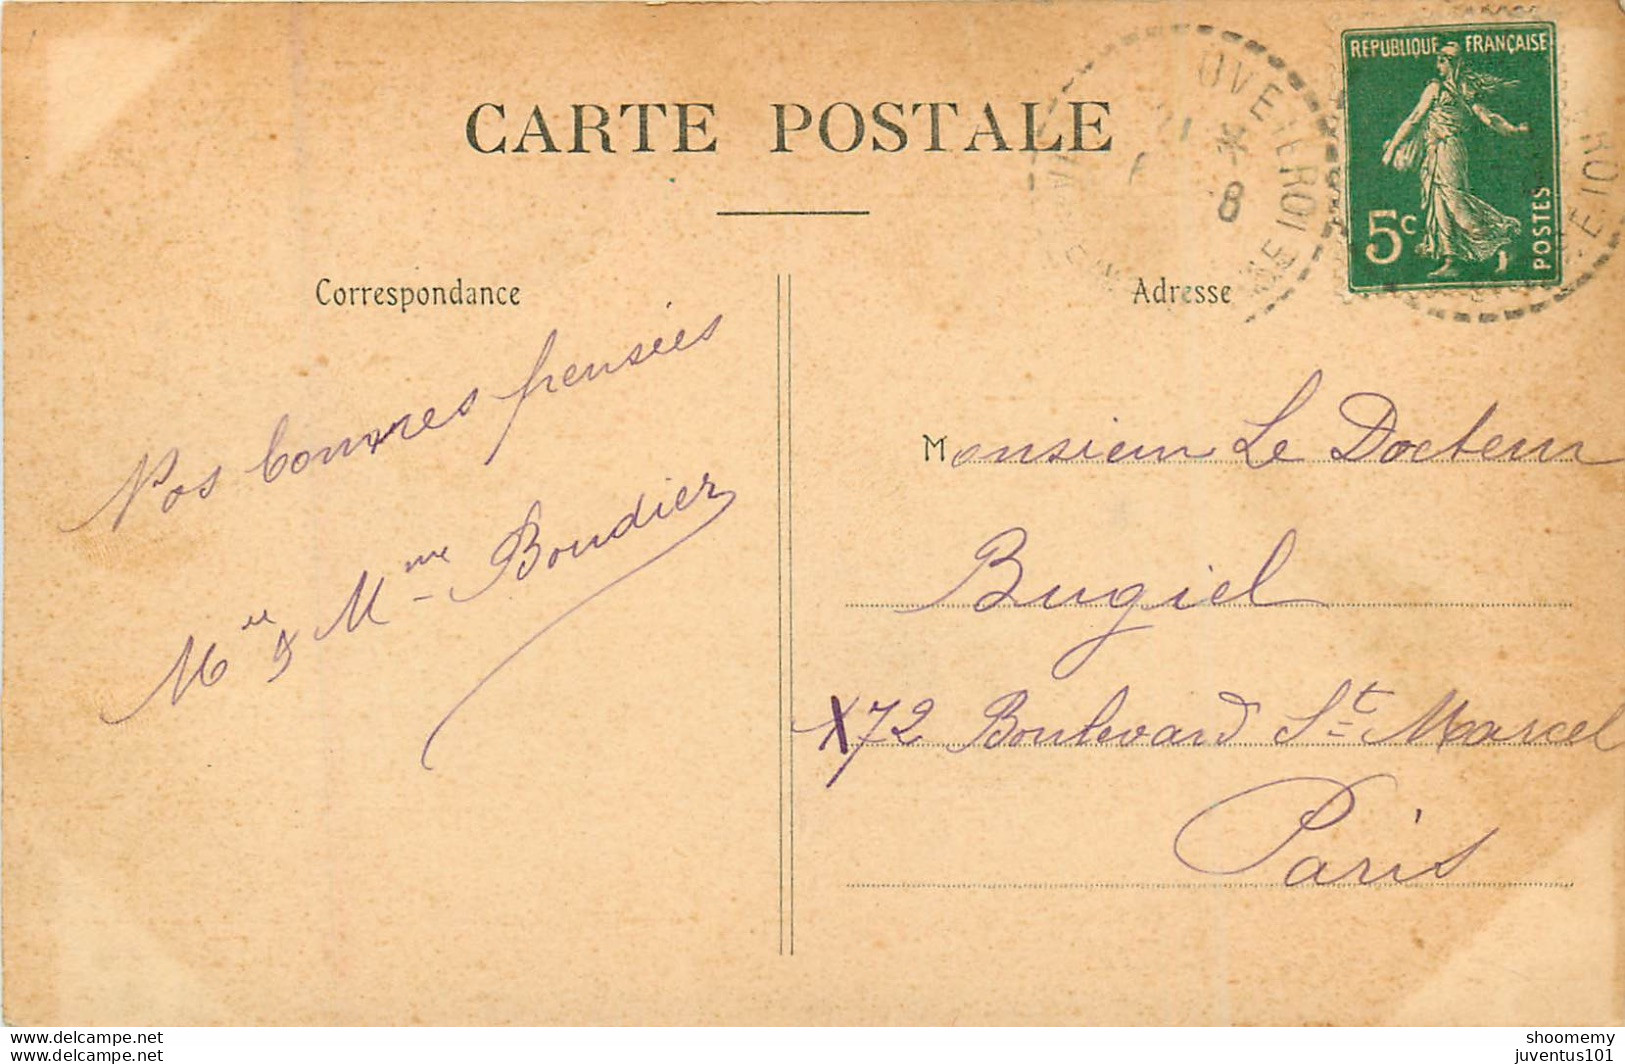 CARTE POSTALE
REPUBLIQUE FRANÇAISE
5c
POSTES
8
Correspondance
Adresse
Nos bonnes pensées
Mr & Mme Boudier
Monsieur Le Docteur
Bugiel
72 Boulevard St Marcel
Paris
www.delcampe.net
www.delcampe.net
shoomemy
juventus101